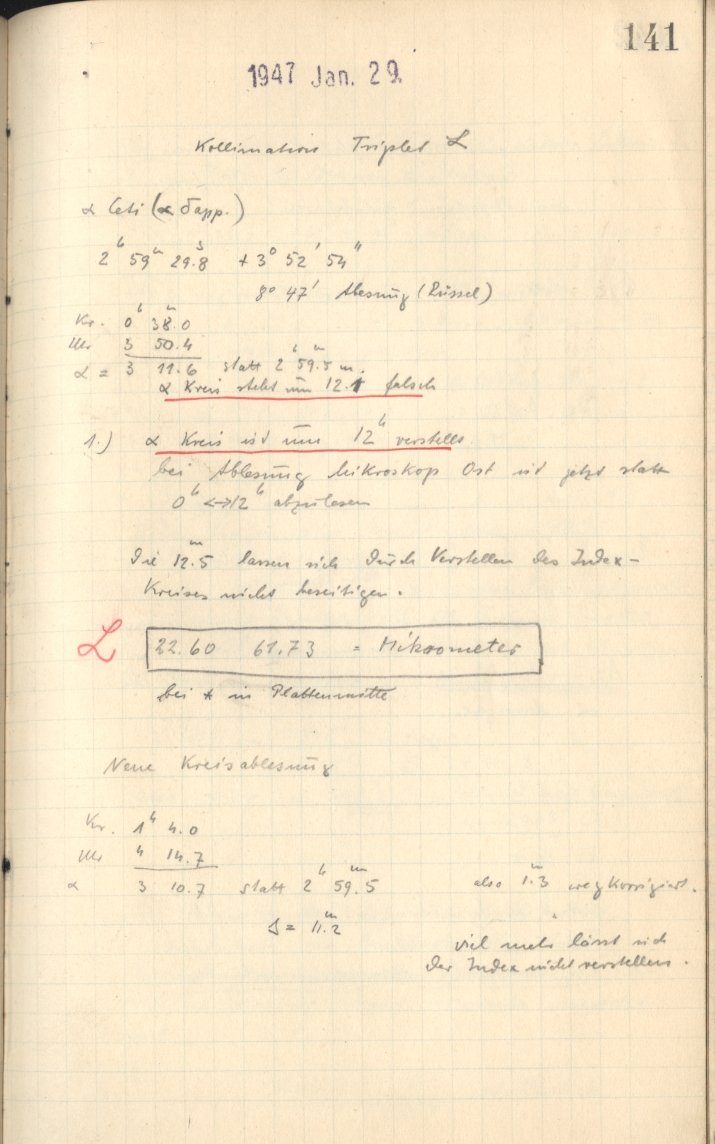 141
1947 Jan. 29.
Kollimation Triplet L
α Ceti (α δ app.)
2ʰ 59ᵐ 29.8ˢ + 3° 52' 54"
8° 47' Ablesung (Rüssel)
Kr. 0ʰ 38.0ᵐ
Uhr 3 50.4
α = 3 11.6 statt 2ʰ 59.5ᵐ
α Kreis steht um 12.1 falsch
1.) α Kreis ist um 12ʰ verstellt
bei Ablesung Mikroskop Ost ist jetzt statt
0ʰ <-> 12ʰ abzulesen
Die 12.5ᵐ lassen sich durch Verstellen des Index-
Kreises nicht beseitigen.
L 22.60 61.73 = Mikrometer
bei * in Plattenmitte
Neue Kreisablesung
Kr. 1ʰ 4.0
Uhr 4 14.7
α 3 10.7 statt 2ʰ 59.5ᵐ also 1.3ᵐ wegkorrigiert.
Δ = 11.2ᵐ
viel mehr lässt sich
der Index nicht verstellen.